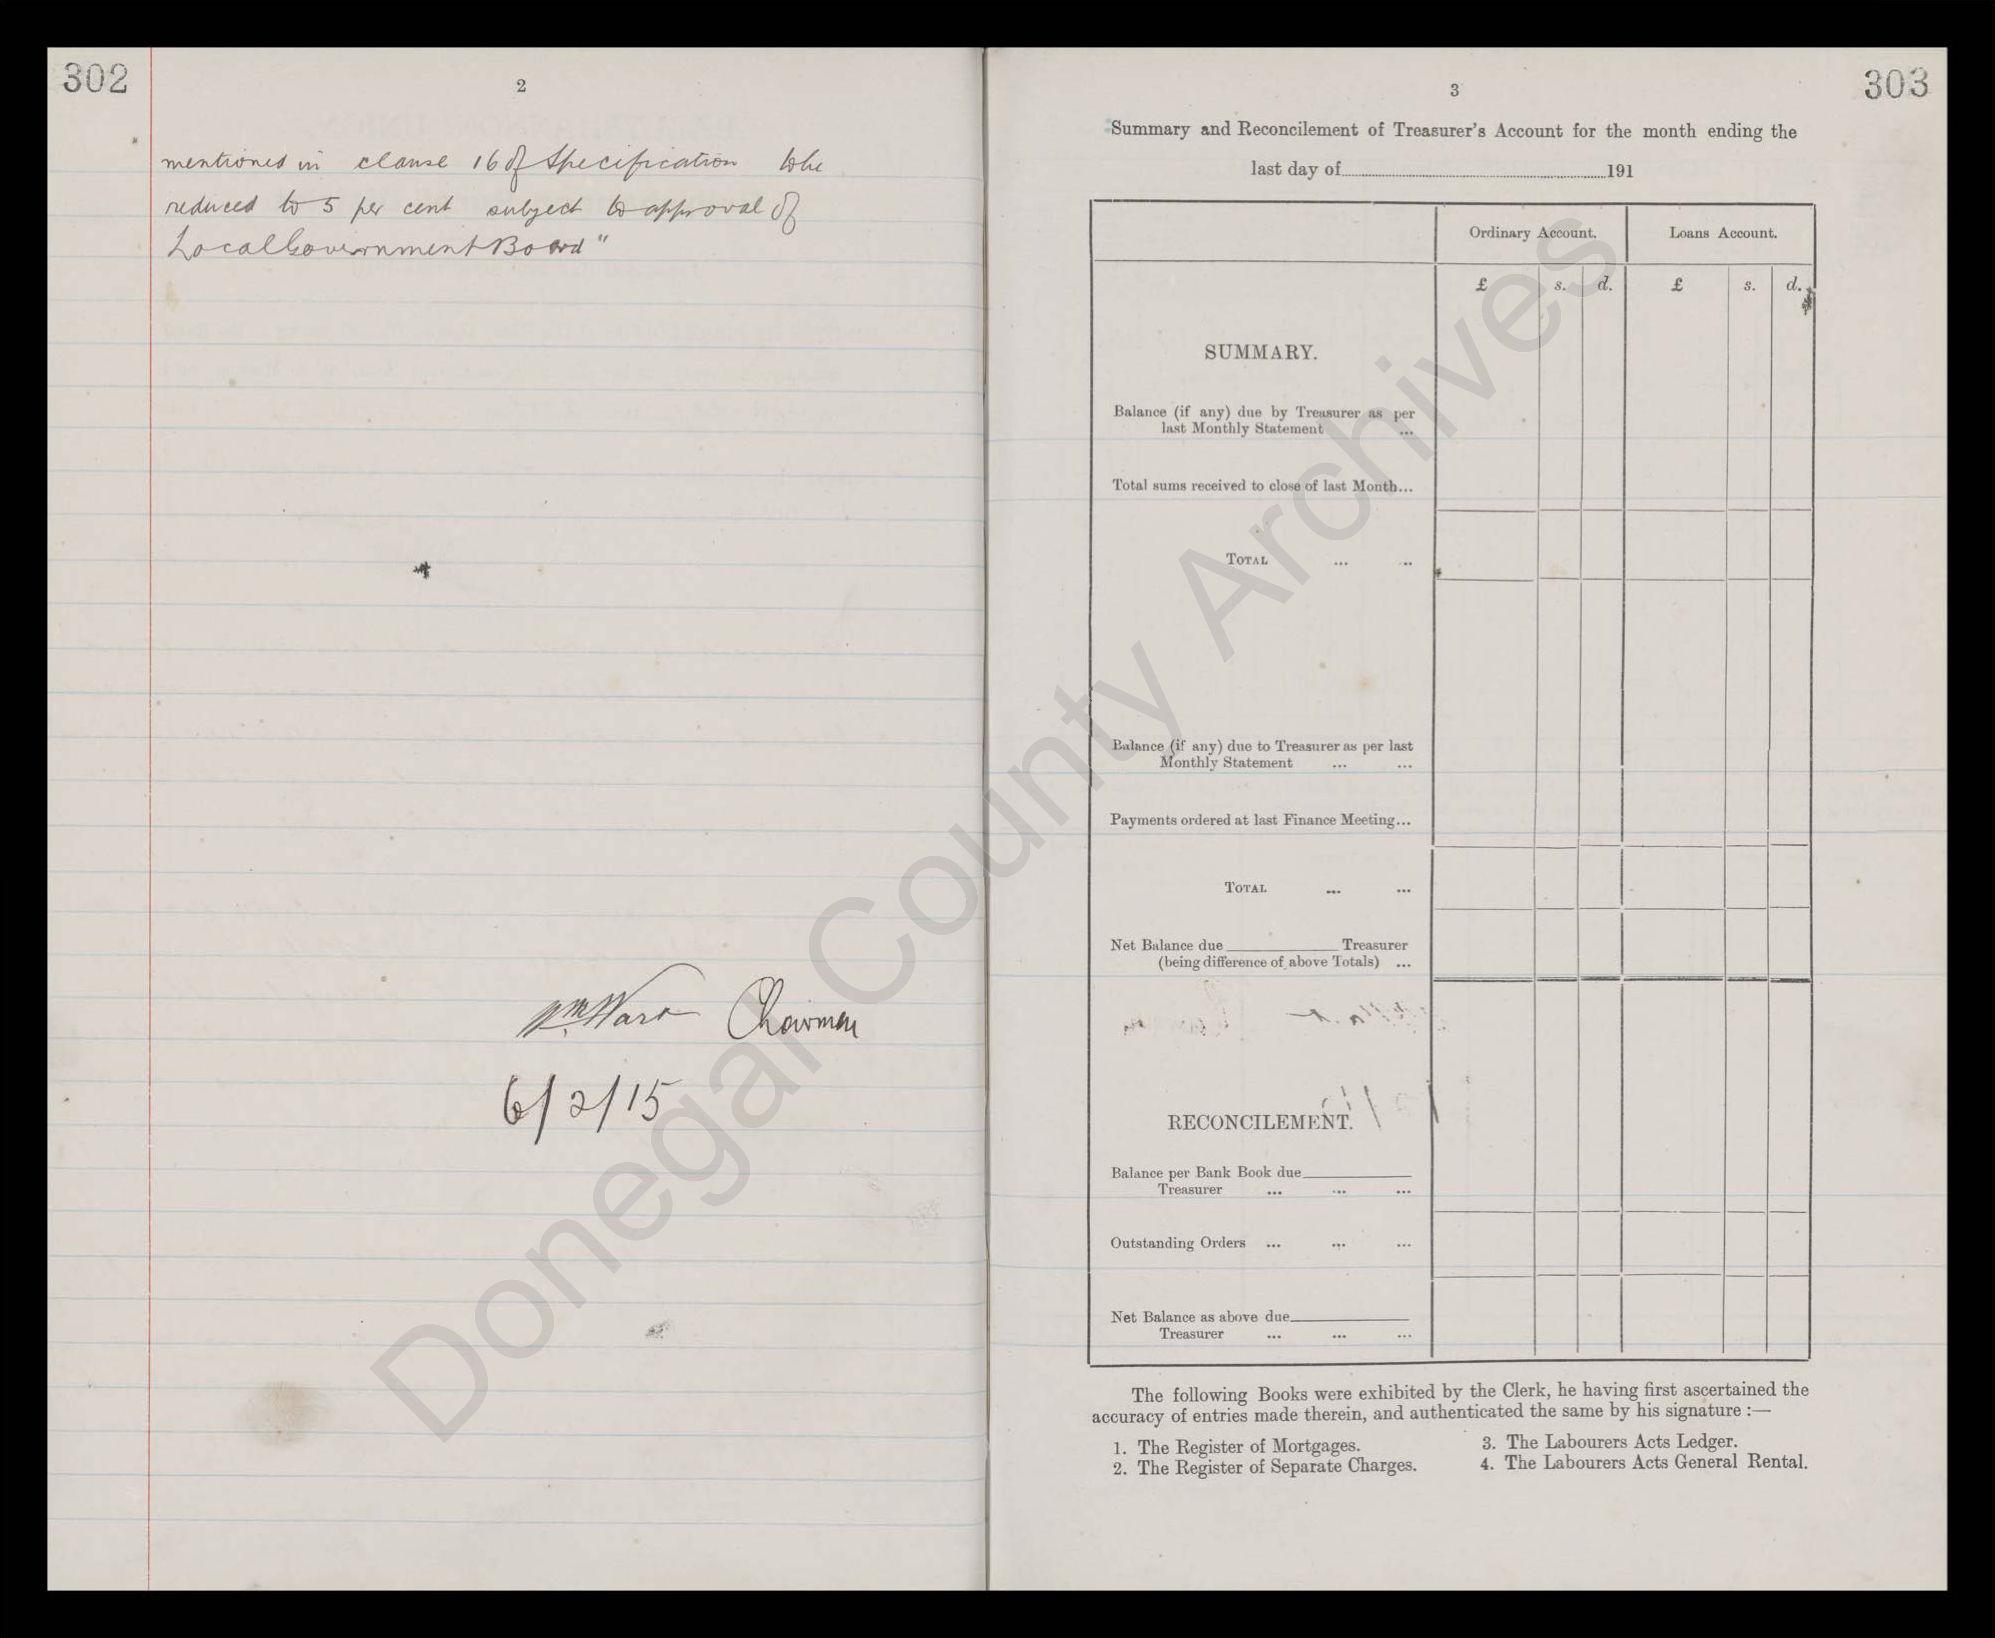 302
2
mentioned in clause 16 of Specification to be
reduced to 5 per cent subject to approval of
Local Government Board"
Wm Ward Chairman
6/2/15
303
3
Summary and Reconcilement of Treasurer's Account for the month ending the
last day of 191
Ordinary Account. Loans Account.
£ s. d. £ s. d.
SUMMARY.
Balance (if any) due by Treasurer as per
last Monthly Statement ...
Total sums received to close of last Month...
TOTAL ... ..
Balance (if any) due to Treasurer as per last
Monthly Statement ... ...
Payments ordered at last Finance Meeting...
TOTAL ... ...
Net Balance due Treasurer
(being difference of above Totals) ...
RECONCILEMENT.
Balance per Bank Book due
Treasurer ... ... ...
Outstanding Orders ... ... ...
Net Balance as above due
Treasurer ... ... ...
The following Books were exhibited by the Clerk, he having first ascertained the
accuracy of entries made therein, and authenticated the same by his signature :—
1. The Register of Mortgages. 3. The Labourers Acts Ledger.
2. The Register of Separate Charges. 4. The Labourers Acts General Rental.
Donegal County Archives